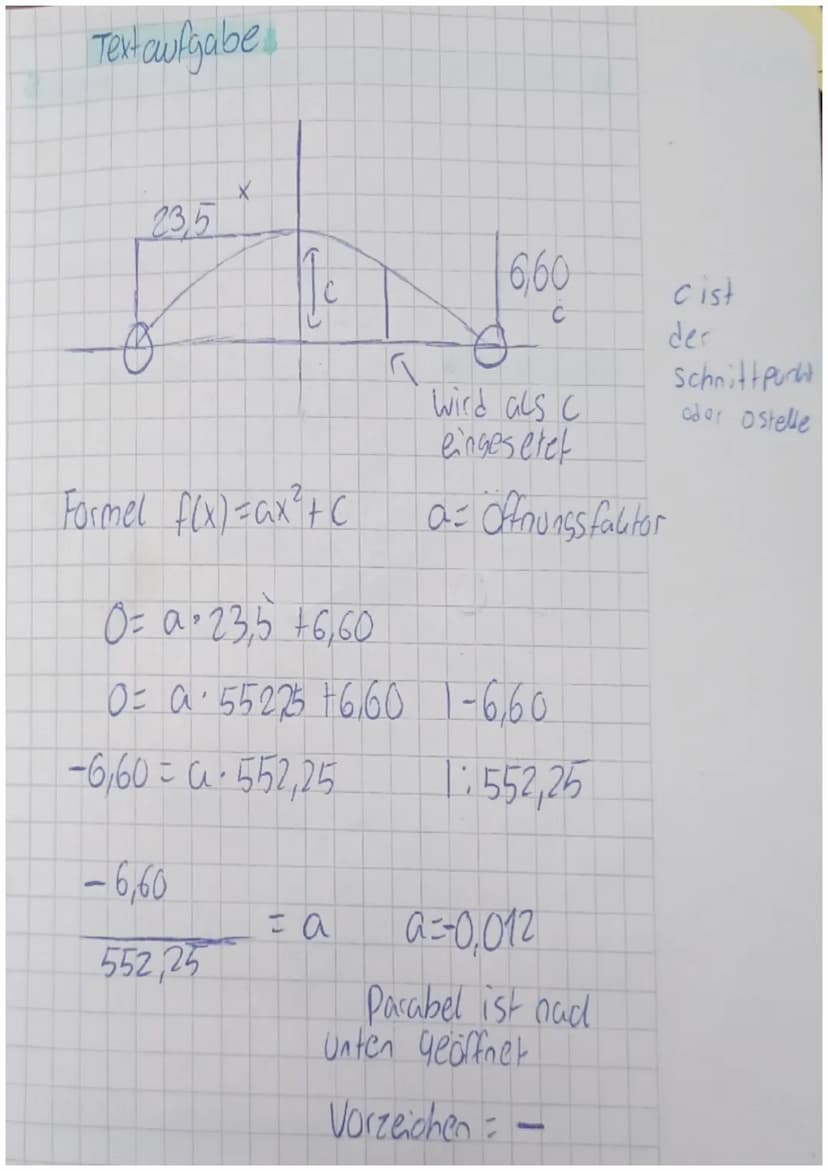 Textaufgabe
x
23,5
6,60
c
c
c ist
der
Schnittpunkt
oder 0stelle
wird als c
eingesetzt
Formel f(x)=ax²+c a= Öffnungsfaktor
0= a·23,5 +6,60
0= a·552,25 +6,60 |-6,60
-6,60 = a·552,25 |:552,25
-6,60
552,25
= a a=-0,012
Parabel ist nach
unten geöffnet
Vorzeichen = -